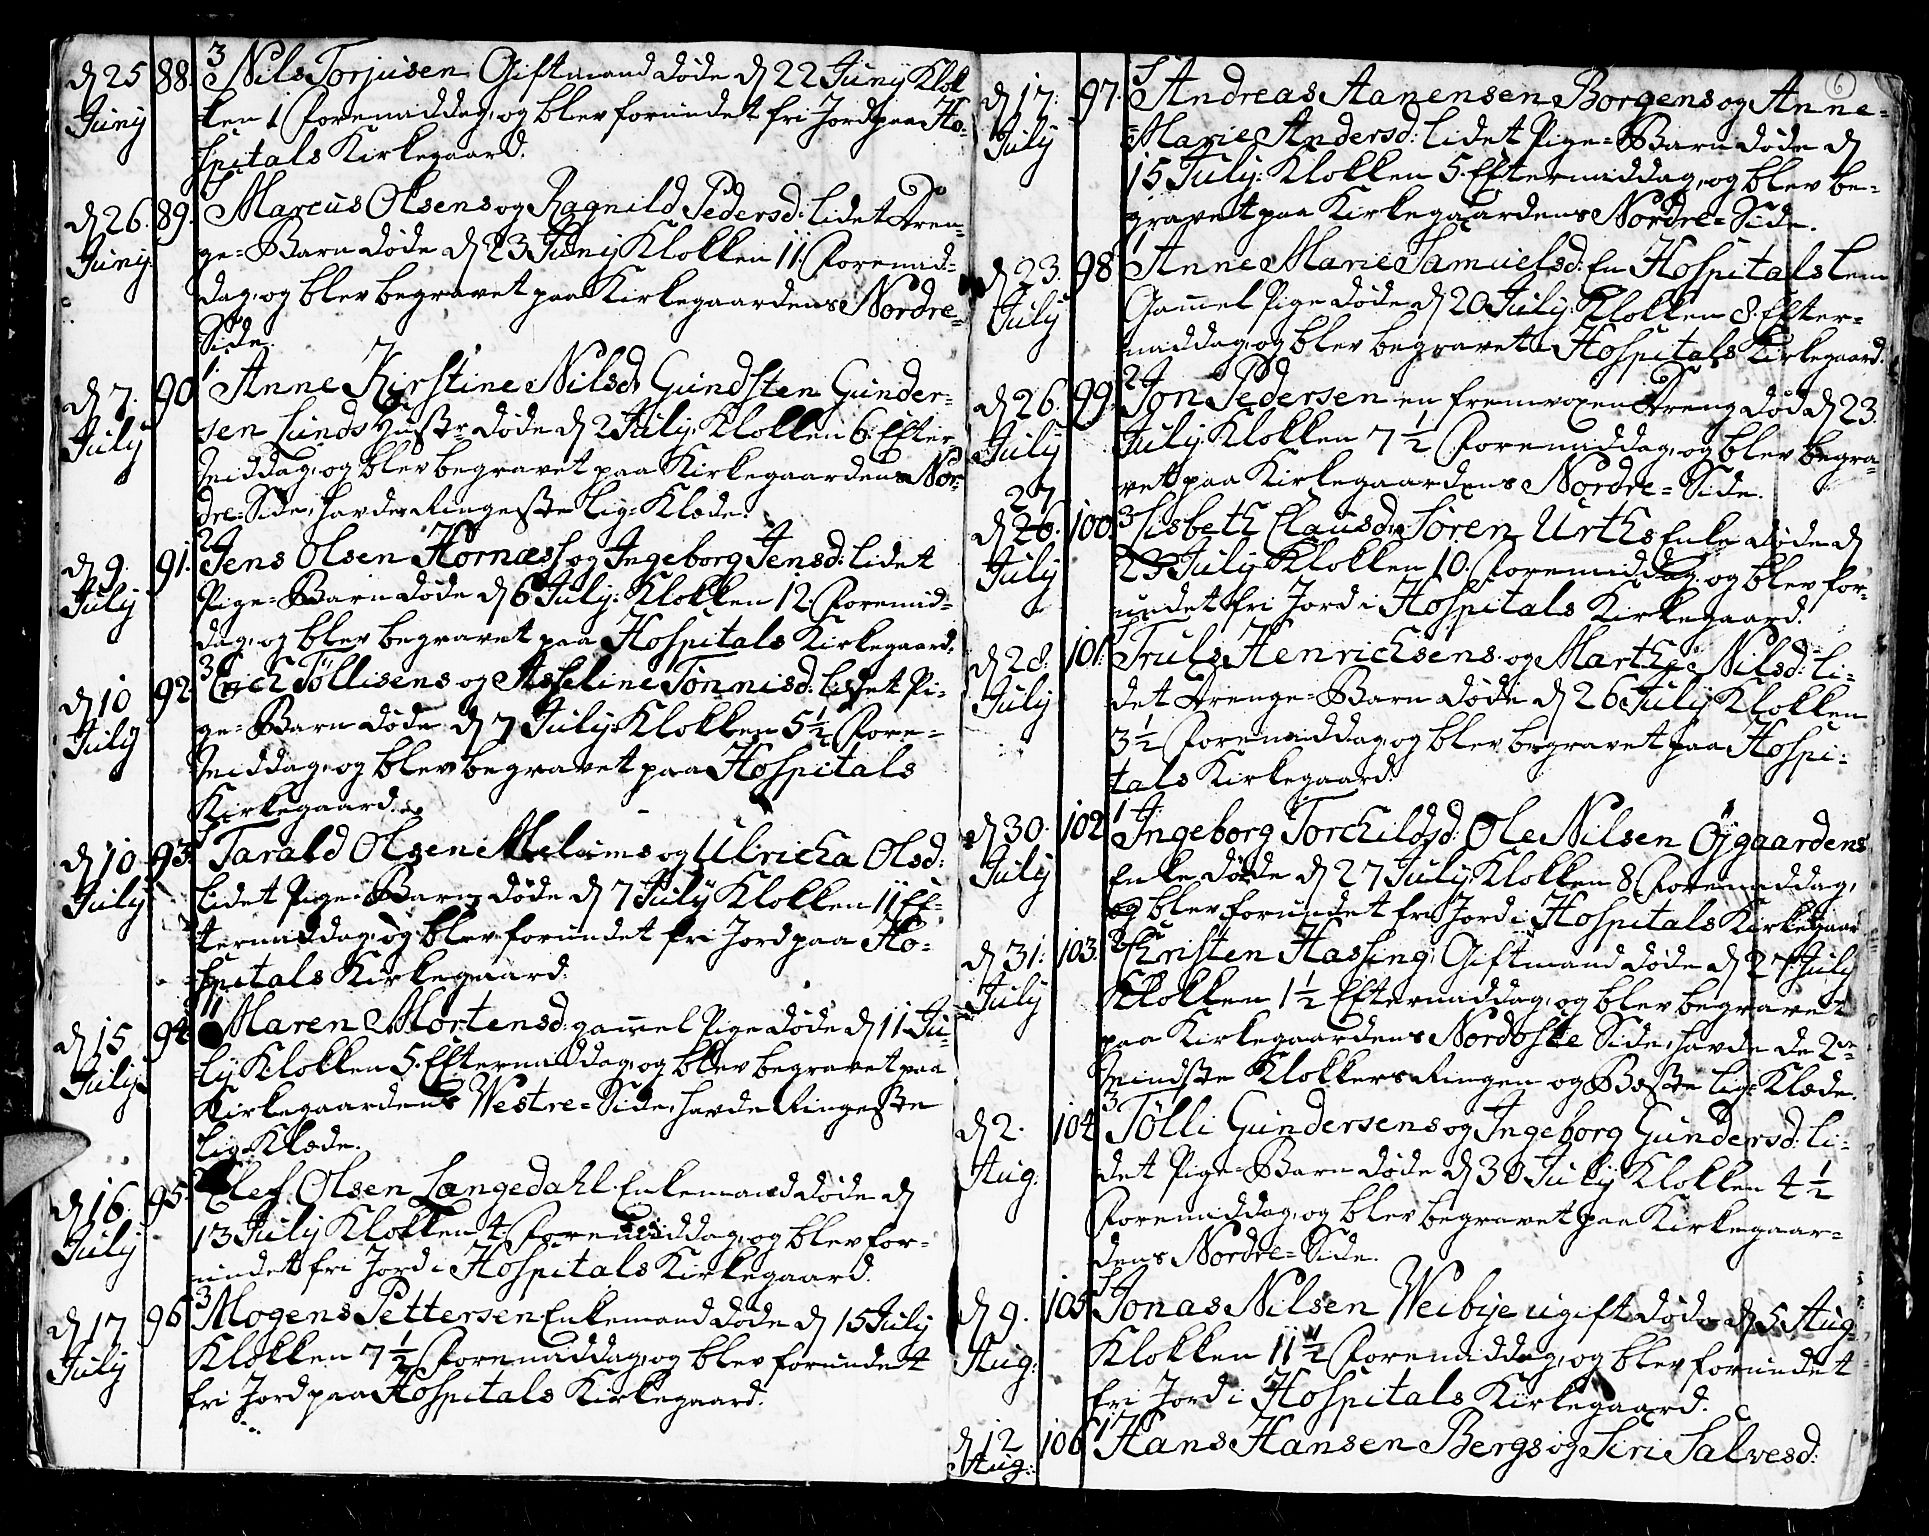 d 25 Juny 88. 3 Nils Torjusen Giftmand døde d 22 Junij Klok
ken 1 Foremiddag, og blev forundet fri Jord paa Ho-
spitals Kirkegaard.
d 26. Junij 89. Marcus Olsens og Ragnild Pedersd: lidet Dren-
ge=Barn døde d 23 Junij Klokken 11. Foremid=
dag, og blev begravet paa Kirkegaardens Nordre=
Side.
d 7. July 90 1 Anne Kirstine Nilsd. Gundsten Gunder-
sen Lunds Hustr. døde d 2 July. Klokken 6. Efter
middag, og blev begravet paa Kirkegaardens Nor-
dre=Side, havde Ringeste Lig=Klæde.
d 9. July 91. 2 Jens Olsen Hornæs og Ingeborg Jensd: lidet
Pige=Barn døde d 6 July. Klokken 12. Foremid=
dag, og blev begravet paa Hospitals Kirkegaard.
d 10 July 92 3 Erich Töllisens og Asseline Tönnisd: lidet Pi-
ge=Barn døde d 7 July. Klokken 5½ Fore-
middag, og blev begravet paa Hospitals
Kirkegaard.
d 10 July 93. Tarald Olsen og Ulricha Olsd:
lidet Pige=Barn døde d 7 July Klokken 11 Ef-
termiddag, og blev forundet fri Jord paa Ho-
spitals Kirkegaard.
d 15 July 94 1 Maren Mortensd: gam̄el Pige døde d 11 Ju-
ly Klokken 5. Eftermiddag, og blev begravet paa
Kirkegaardens Westre=Side, havde Ringeste
Lig=Klæde.
d 16. July 95. Elef Olsen Langedahl Enkemand døde d
13 July Klokken 4 Foremiddag, og blev for-
undet fri Jord i Hospitals Kirkegaard.
d 17 July 96 3 Mogens Pettersen Enkemand døde d 15 July
Klokken 7½ Foremiddag, og blev forundet
fri Jord paa Hospitals Kirkegaard.
6
d 17. July 97. Andreas Aanensen Borgens og Anne=
=Marie Andersd: lidet Pige=Barn døde d
15 July. Klokken 5. Eftermiddag, og blev be-
gravet paa Kirkegaardens Nordre=Side.
d 23. July 98 1 Anne Marie Samuelsd: En Hospitals Lem
Gam̄el Pige døde d 20 July. Klokken 8. Efter=
middag, og blev begravet i Hospitals Kirkegaard.
d 26. July 99. 2 Jon Pedersen en fremvoxen Dreng død d 23.
July. Klokken 7½ Foremiddag, og blev begra-
vet paa Kirkegaardens Nordre=Side.
27
d 26. July 100. 3 Lisbeth Clausd. Sören Urths Enke døde d
23 July Klokken 10. Foremiddag, og blev for-
undet fri Jord i Hospitals Kirkegaard.
d 28. July 101. Truls Henrichsens og Marthe Nilsd: li-
det Drenge=Barn døde d 26 July Klokken
3½ Foremiddag, og blev begravet paa Hospi-
tals Kirkegaard.
d 30. July 102 1 Ingeborg Torchildsd: Ole Nilsen Öjgaardens
Enke døde d 27 July Klokken 8 Foremiddag,
og blev forundet fri Jord i Hospitals Kirkegaar
d 31. July 103. 2 Christen Hassing, Giftmand døde d 27 July
Klokken 1½ Eftermiddag, og blev begravet
paa Kirkegaardens Nordoste Side, havde de 2de
mindste Klokkers Ringen og Beste Lig=Klæde.
d 2. Aug: 104 3 Tölli Gundersens og Ingeborg Gundersd: li-
det Pige=Barn døde d 30 July Klokken 4½
Foremiddag, og blev begravet paa Kirkegaar-
dens Nordre=Side.
d 9. Aug: 105 Jonas Nilsen Weibye ugift døde d 5 Aug:
Klokken 11½ Foremiddag, og blev forundet
fri Jord i Hospitals Kirkegaard.
d 12 Aug: 106 1 Hans Hansen Bergs og Siri Salvesd: